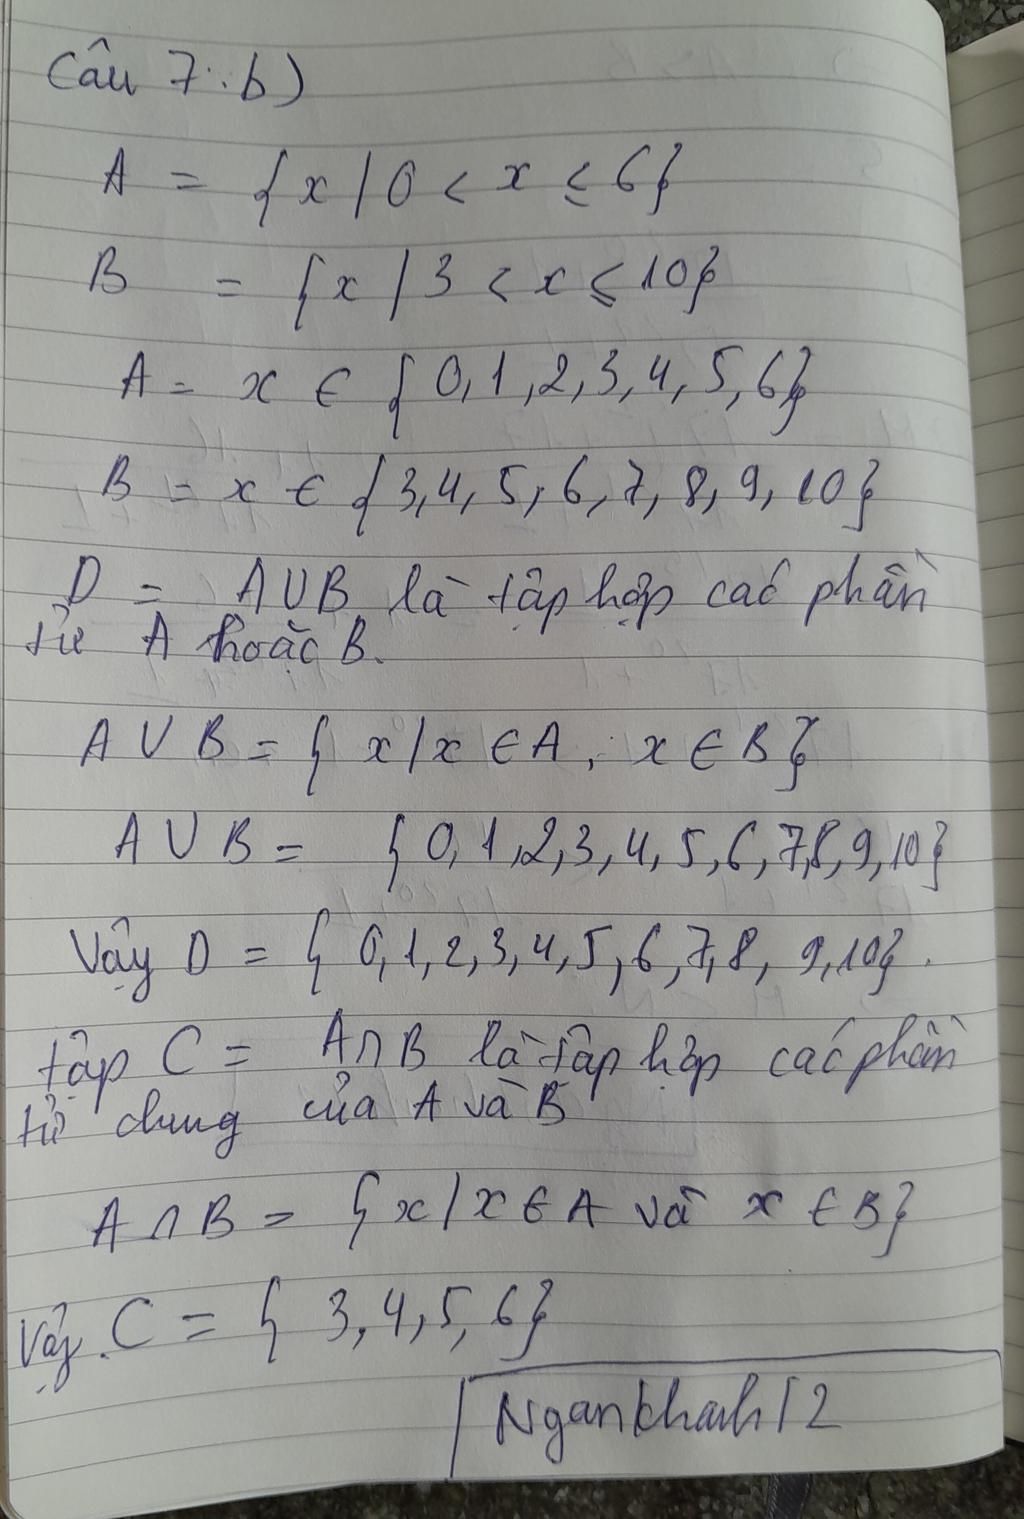 Câu 7: b)
A = {x / 0 < x ≤ 6}
B = {x / 3 < x ≤ 10}
A = x ∈ {0, 1, 2, 3, 4, 5, 6}
B = x ∈ {3, 4, 5, 6, 7, 8, 9, 10}
D = A ∪ B là tập hợp các phần
tử A hoặc B.
A ∪ B = { x / x ∈ A, x ∈ B}
A ∪ B = { 0, 1, 2, 3, 4, 5, 6, 7, 8, 9, 10}
Vậy D = { 0, 1, 2, 3, 4, 5, 6, 7, 8, 9, 10}.
tập C = A ∩ B là tập hợp các phần
tử chung của A và B
A ∩ B = { x / x ∈ A và x ∈ B}
Vậy C = { 3, 4, 5, 6}
Ngankhanh12